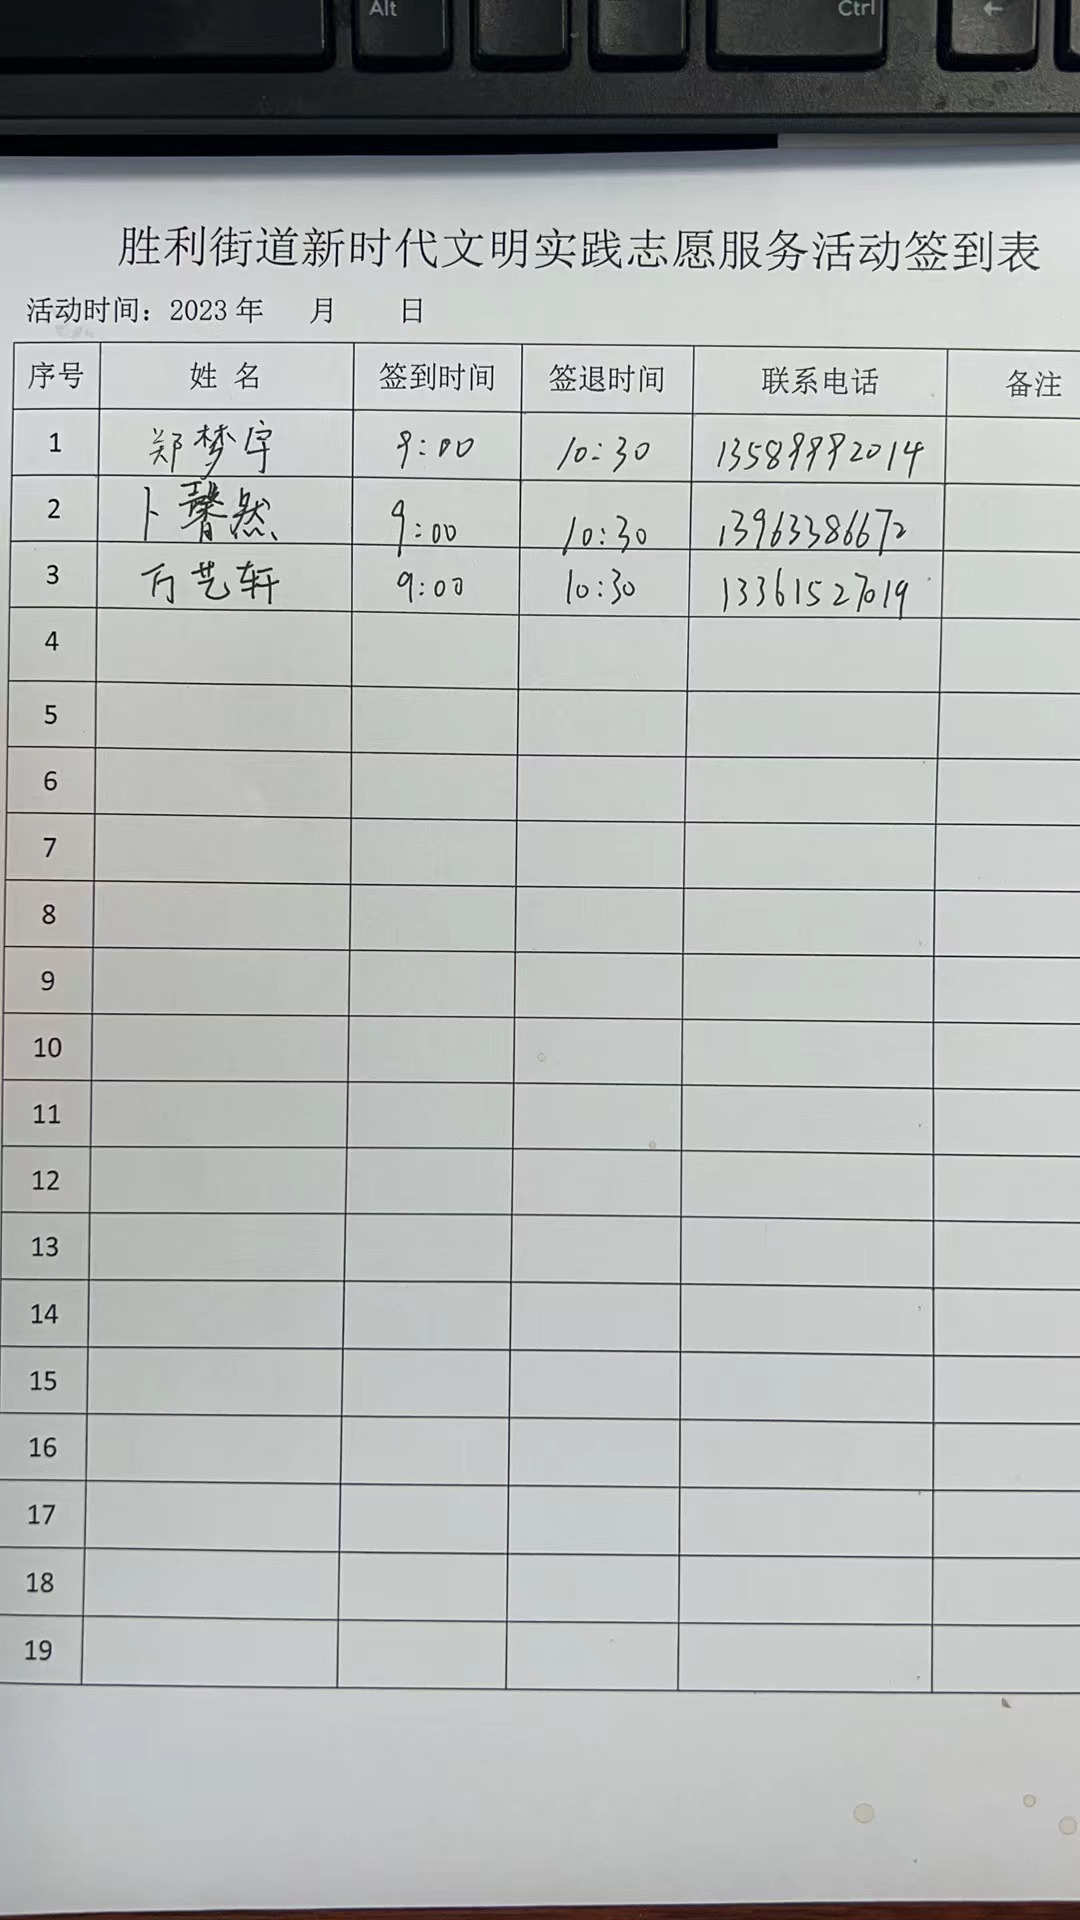 Alt Ctrl ←
胜利街道新时代文明实践志愿服务活动签到表
活动时间：2023 年 月 日
序号 姓 名 签到时间 签退时间 联系电话 备注
1 郑梦宇 9:00 10:30 13589992014
2 卜馨然 9:00 10:30 13963386672
3 万艺轩 9:00 10:30 13361527019
4
5
6
7
8
9
10
11
12
13
14
15
16
17
18
19